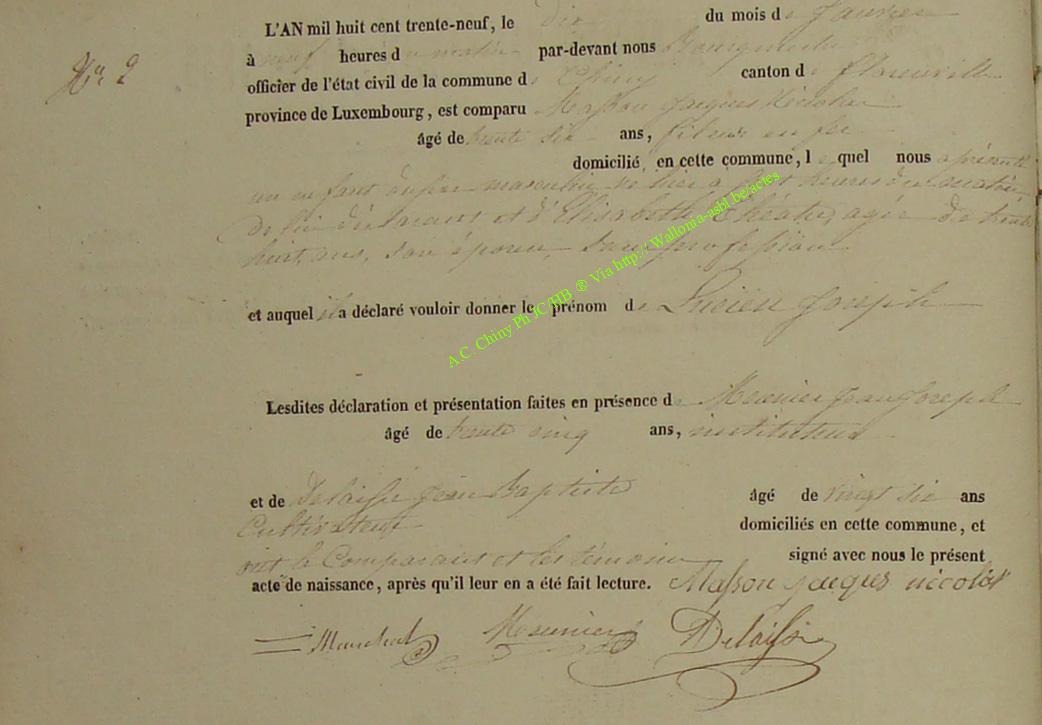 N° 2
L'AN mil huit cent trente-neuf, le dix du mois de Janvier
à neuf heures du matin par-devant nous Bourgmestre
officier de l'état civil de la commune de Chiny canton de florenville
province de Luxembourg, est comparu Masson Jacques Nicolas
âgé de trente six ans, fileur en fer
domicilié en cette commune, lequel nous a présenté
un enfant du sexe masculin né hier à sept heures du matin
de lui déclarant et d'Elisabeth agée de trente
huit ans, son épouse, sans profession
et auquel il a déclaré vouloir donner le prénom de Lucien Joseph
Lesdites déclaration et présentation faites en présence de Meunier Jean Joseph
âgé de trente cinq ans, instituteur
et de Delaisse Jean Baptiste âgé de vingt six ans
Cultivateur domiciliés en cette commune, et
ont le Comparant et les témoins signé avec nous le présent
acte de naissance, après qu'il leur en a été fait lecture. Masson jacques nicolas
Marechal Meunier Delaisse
A.C. Chiny Ph JC/HB ® Via http://Wallonia-asbl.be/actes